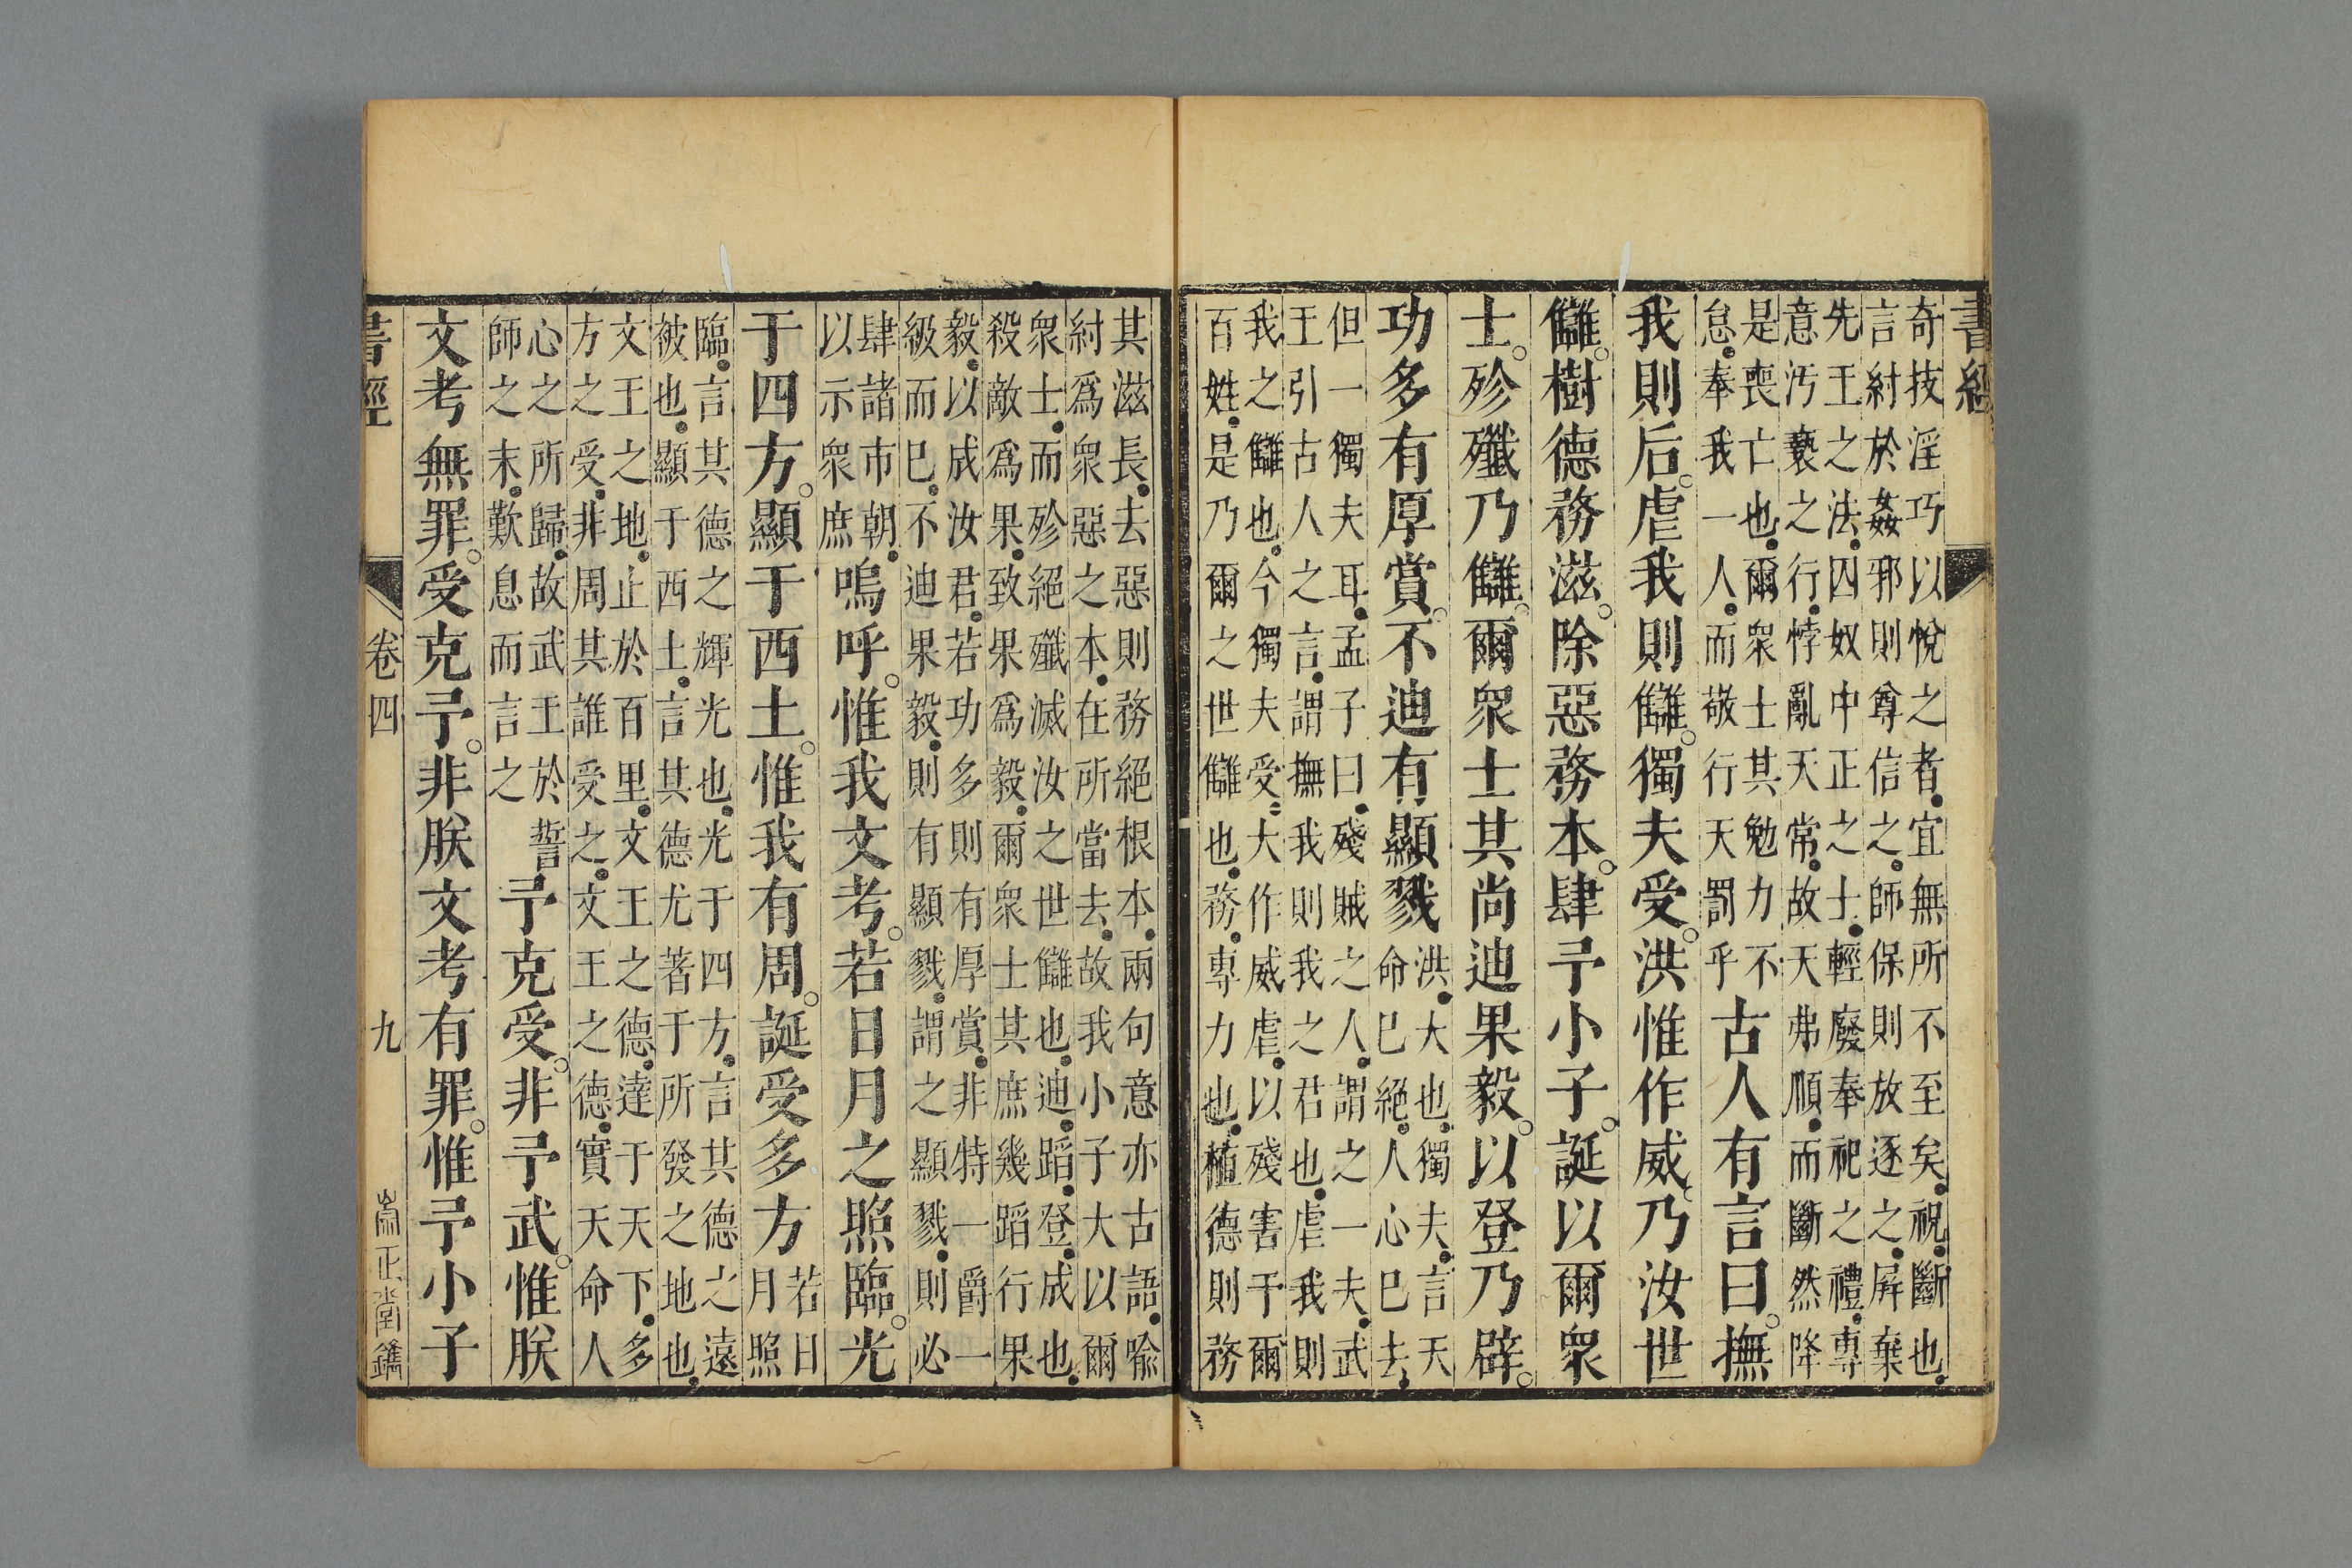 書經
奇技淫巧以悅之者宜無所不至矣祝斷也
言紂於姦邪則尊信之師保則放逐之屏棄
先王之法囚奴中正之士輕廢奉祀之禮專
意汚褻之行悖亂天常故天弗順而斷然降
是喪亡也爾衆士其勉力不
怠奉我一人而敬行天罰乎
古人有言曰撫
我則后虐我則讎獨夫受洪惟作威乃汝世
讎樹德務滋除惡務本肆予小子誕以爾衆
士殄殲乃讎爾衆士其尚迪果毅以登乃辟
功多有厚賞不迪有顯戮
洪大也獨夫言天
命已絕人心已去
但一獨夫耳孟子曰殘賊之人謂之一夫武
王引古人之言謂撫我則我之君也虐我則
我之讎也今獨夫受大作威虐以殘害于爾
百姓是乃爾之世讎也務專力也植德則務
其滋長去惡則務絕根本兩句意亦古語喩
紂爲衆惡之本在所當去故我小子大以爾
衆士而殄絕殲滅汝之世讎也迪蹈登成也
殺敵爲果致果爲毅爾衆士其庶幾蹈行果
毅以成汝君若功多則有厚賞非特一爵一
級而已不迪果毅則有顯戮謂之顯戮則必
肆諸市朝
以示衆庶
嗚呼惟我文考若日月之照臨光
于四方顯于西土惟我有周誕受多方
若日
月照
臨言其德之輝光也光于四方言其德之遠
被也顯于西土言其德尤著于所發之地也
文王之地止於百里文王之德達于天下多
方之受非周其誰受之文王之德實天命人
心之所歸故武王於誓
師之末歎息而言之
予克受非予武惟朕
文考無罪受克予非朕文考有罪惟予小子
書經 卷四 九 崇正堂鐫